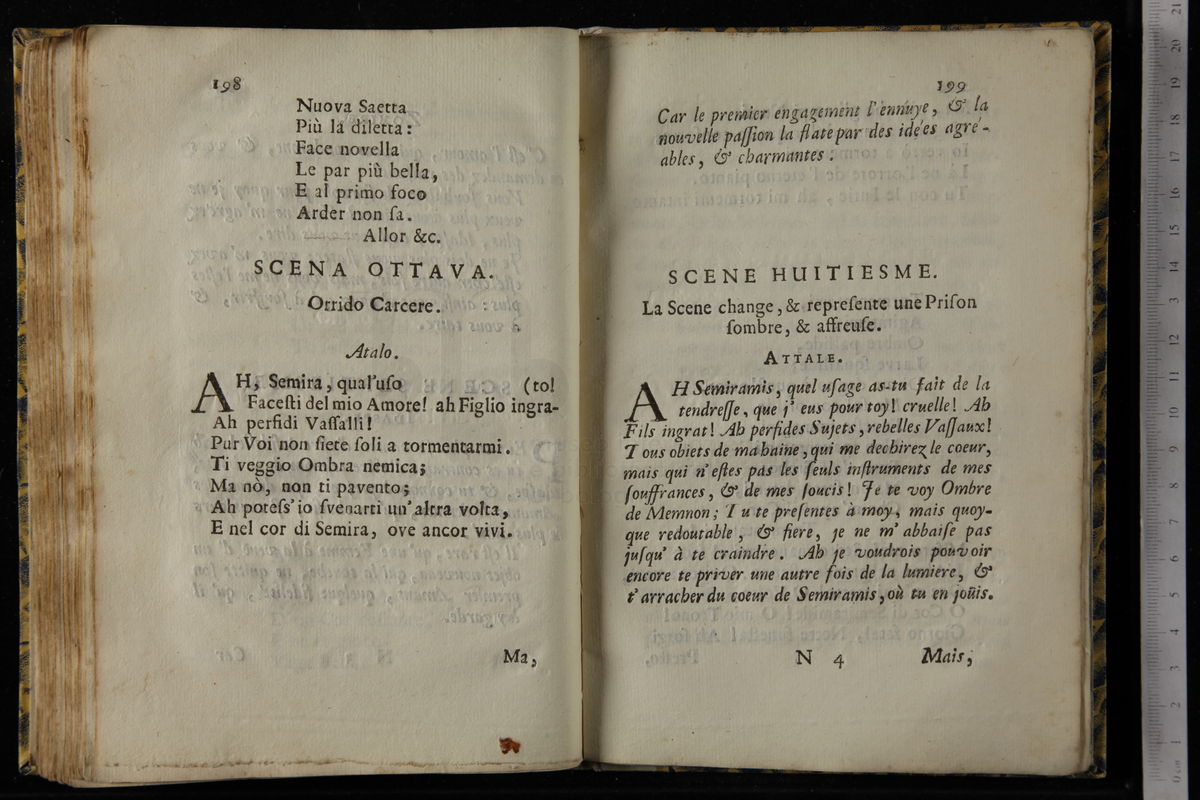 198
Nuova Saetta
Più la diletta:
Face novella
Le par più bella,
E al primo foco
Arder non ſa.
Allor &c.
SCENA OTTAVA.
Orrido Carcere.
Atalo.
AH, Semira, qual'uſo (to!
Faceſti del mio Amore! ah Figlio ingra-
Ah perfidi Vaſſalli!
Pur Voi non ſiete ſoli a tormentarmi.
Ti veggio Ombra nemica;
Ma nò, non ti pavento;
Ah poteſs'io ſvenarti un'altra volta,
E nel cor di Semira, ove ancor vivi.
Ma,
199
Car le premier engagement l'ennuye, & la
nouvelle paſſion la flate par des idées agré-
ables, & charmantes:
SCENE HUITIESME.
La Scene change, & repreſente une Priſon
ſombre, & affreuſe.
ATTALE.
AH Semiramis, quel uſage as-tu fait de la
tendreſſe, que j'eus pour toy! cruelle! Ah
Fils ingrat! Ah perfides Sujets, rebelles Vaſſaux!
Tous obiets de ma haine, qui me dechirez le coeur,
mais qui n'eſtes pas les ſeuls inſtruments de mes
ſouffrances, & de mes ſoucis! Je te voy Ombre
de Memnon; Tu te preſentes à moy, mais quoy-
que redoutable, & fiere, je ne m'abbaiſe pas
juſqu'à te craindre. Ah je voudrois pouvoir
encore te priver une autre fois de la lumiere, &
t'arracher du coeur de Semiramis, où tu en joüis.
N 4
Mais,